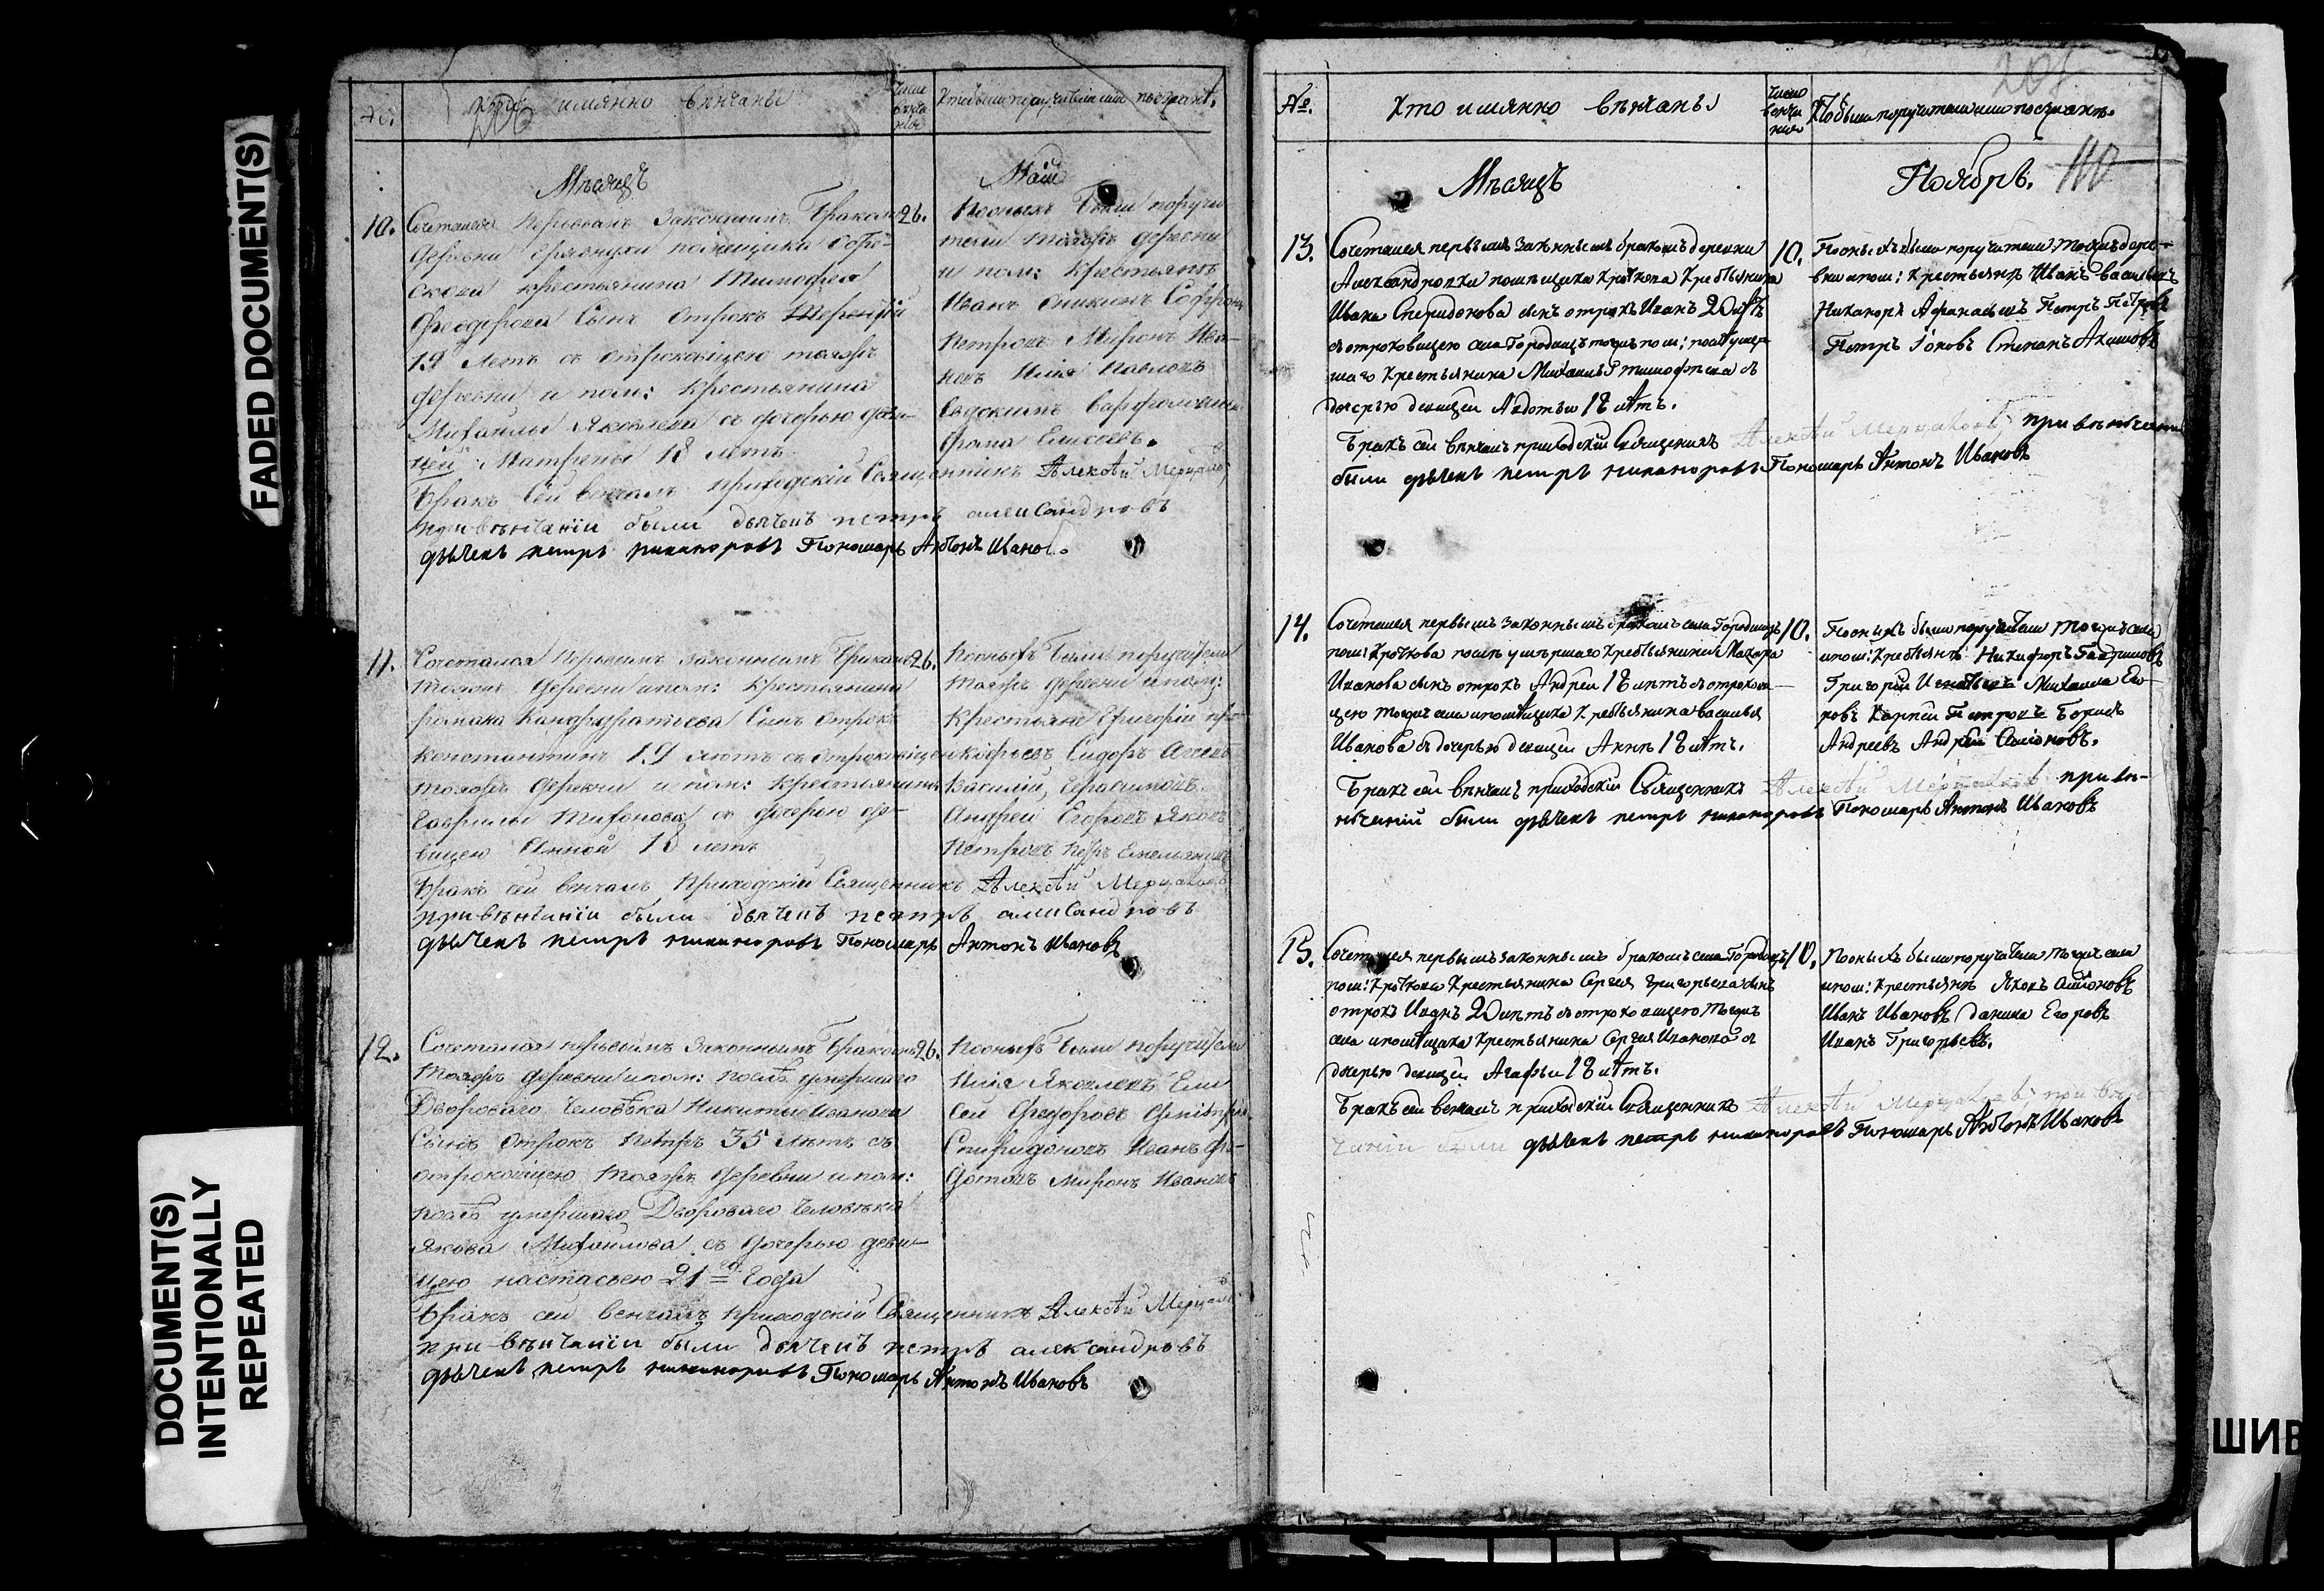 FADED DOCUMENT(S)
DOCUMENT(S)
INTENTIONALLY
REPEATED
имянно вѣнчаны
Мѣсяцъ
Маій
10. Сочетался первымъ законнымъ бракомъ
деревни помещика
скова крестьянина Тимофея
Феодорова сынъ отрокъ
19 летъ съ отроковицею тояжъ
деревни и пом: крестьянина
Михайлы Яковлева съ дочерью деви-
цей Матреной 18 летъ
Бракъ сей венчалъ приходскій Священникъ Алексѣй
при вѣнчаніи были дьячекъ петръ александровъ
дьячекъ петръ никаноровъ Пономарь Антонъ Ивановъ
26.
По онымъ были поручи
тели тояжъ деревни
и пом: крестьяне
Иванъ
Петровъ Миронъ Ива-
новъ Илья Павловъ
Фома Елисеевъ.
11. Сочетался первымъ законнымъ бракомъ
тояжъ деревни и пом: крестьянина
сынъ отрокъ
константинъ 19 лѣтъ съ отроковицею
тояжъ деревни и пом: крестьянина
Гаврилы Тихонова съ дочерью де-
вицею Анной 18 летъ
Бракъ сей венчалъ Приходскій Священникъ Алексѣй
при вѣнчаніи были дьячекъ петръ александровъ
дьячекъ петръ никаноровъ Пономарь Антонъ Ивановъ
26.
По онымъ были поручители
тояжъ деревни и пом:
крестьяне Григорій
Сидоръ
Василій Герасимовъ
Андрей Егоровъ Яковъ
Петровъ Петръ Емельяновъ
12. Сочетался первымъ законнымъ бракомъ
тояжъ деревни и пом: послѣ умершаго
Двороваго человѣка Никиты Иванова
Сынъ отрокъ Петръ 35 лѣтъ съ
отроковицею тояжъ деревни и пом:
послѣ умершаго Двороваго человѣка
Якова Михайлова съ дочерью деви-
цею настасьею 21го года
Бракъ сей венчалъ приходскій Священникъ Алексѣй
при вѣнчаніи были дьячекъ петръ александровъ
дьячекъ петръ никаноровъ Пономарь Антонъ Ивановъ
26.
По онымъ были поручители
Илья Яковлевъ Ели
сей Федоровъ Дмитрій
Спиридоновъ Иванъ Фе-
дотовъ Миронъ Ивановъ
201
№.
Кто имянно вѣнчаны
Число
венча
нія
Кто были поручители или поезжане.
Мѣсяцъ
Ноябрь.
110
13. Сочетался первымъ законнымъ бракомъ деревни
Александровки помѣщика Кроткова Крестьянина
Ивана Спиридонова сынъ отрокъ Иванъ 20 лѣтъ
съ отроковицею села Городищъ тогожъ пом: послѣ умер
шаго Крестьянина съ
дочерью девицей Авдотьи 18 лѣтъ.
Бракъ сей вѣнчалъ приходскій Священникъ Алексѣй при вѣнчаніи
были дьячекъ петръ никаноровъ Пономарь Антонъ Ивановъ
10.
По онымъ были поручители тояжъ дере-
вни и пом: Крестьянъ Иванъ Васильевъ
Никаноръ Афанасьевъ Петръ Петровъ
Петръ Іововъ Степанъ Акимовъ
14. Сочетался первымъ законнымъ бракомъ села Городищъ
пом: Кроткова послѣ умершаго Крестьянина Макара
Иванова сынъ отрокъ Андрей 18 лѣтъ съ отрокови-
цею тогожъ села и помѣщика Крестьянина Василья
Иванова съ дочерью девицей Анны 18 лѣтъ.
Бракъ сей вѣнчалъ приходскій Священникъ Алексѣй при вѣ-
нчаніи были дьячекъ петръ никаноровъ Пономарь Антонъ Ивановъ
10.
По онымъ были поручители тогожъ села
и пом: Крестьянъ Никифоръ Гавриловъ
Григорій Игнатьевъ Михаила Его-
ровъ Карпъ Петровъ Борисъ
Андреевъ Андрей Симоновъ.
15. Сочетался первымъ законнымъ бракомъ села Городищъ
пом: Кроткова Крестьянина Сергея Григорьева сынъ
отрокъ Иванъ 20 лѣтъ съ отроковицею тогожъ
села и помѣщика Крестьянина Сергея Иванова съ
дочерью девицей Агафьи 18 лѣтъ.
Бракъ сей венчалъ приходскій Священникъ Алексѣй при вѣн
чаніи были дьячекъ петръ никаноровъ Пономарь Антонъ Ивановъ
10.
По онымъ были поручители тогожъ села
и пом: Крестьянъ Яковъ Симоновъ
Иванъ Ивановъ Данила Егоровъ
Иванъ Григорьевъ.
ШИВ